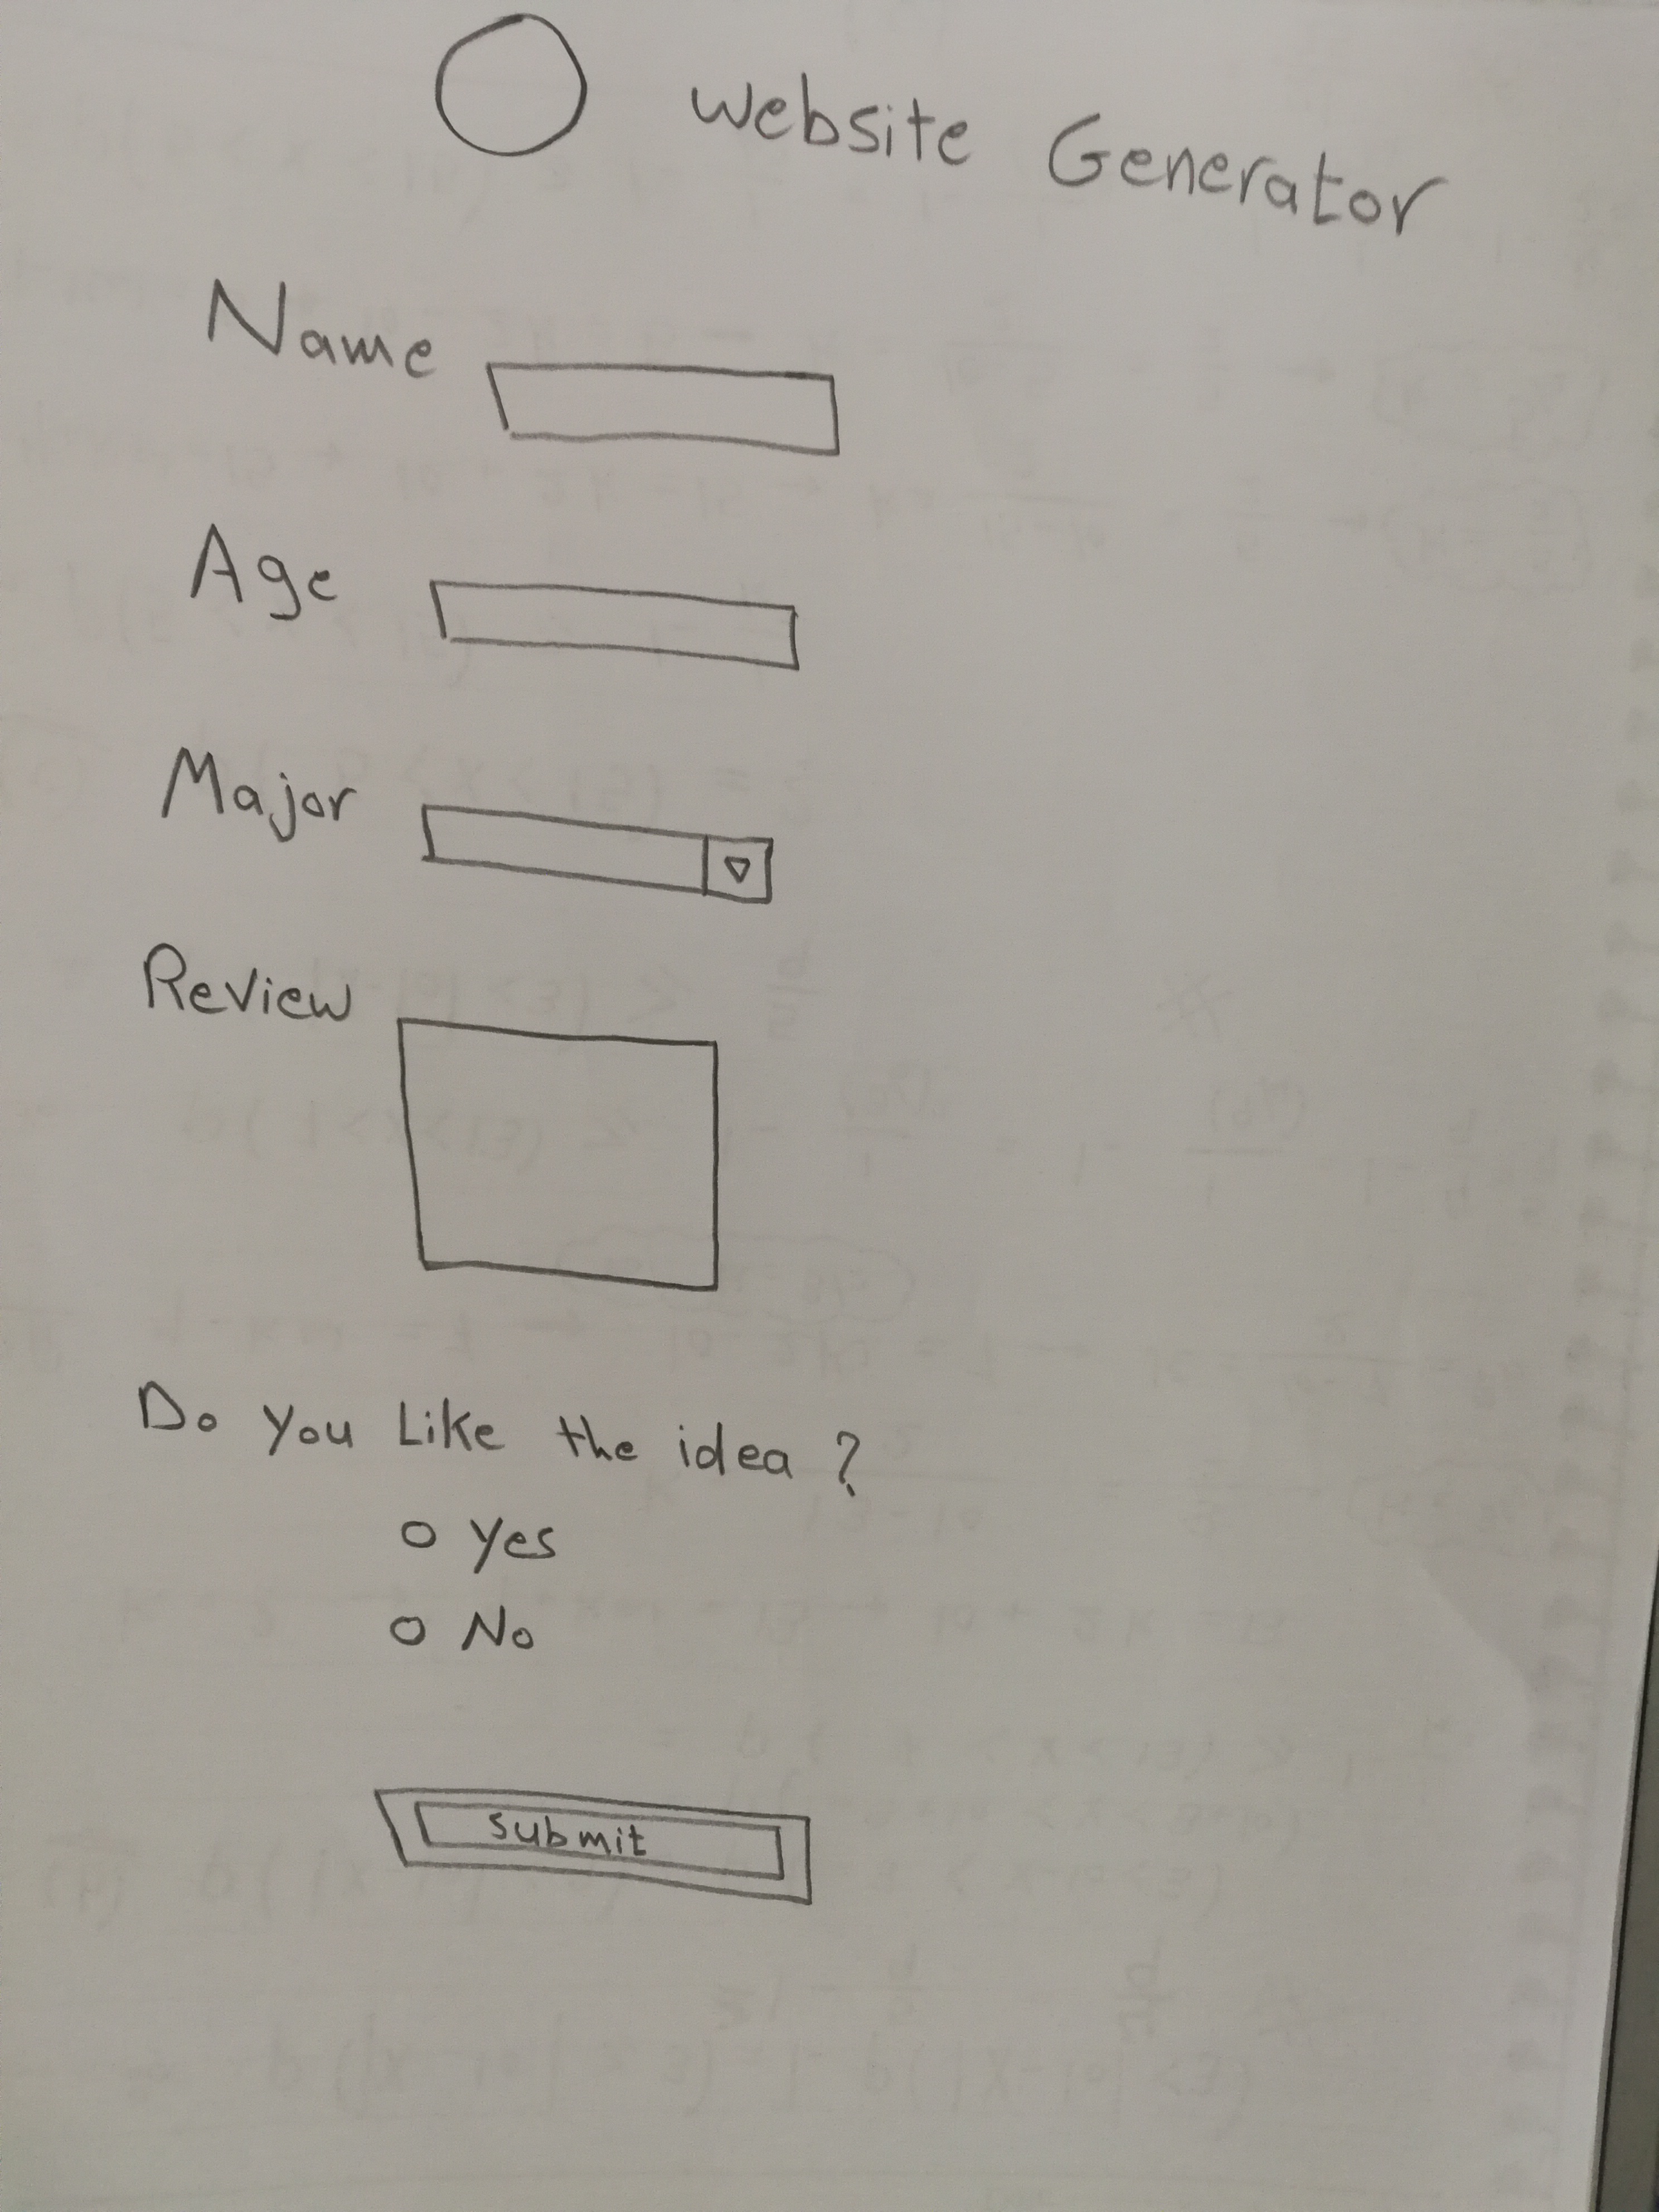 Website Generator
Name
Age
Major
Review
Do you Like the idea ?
Yes
No
Submit